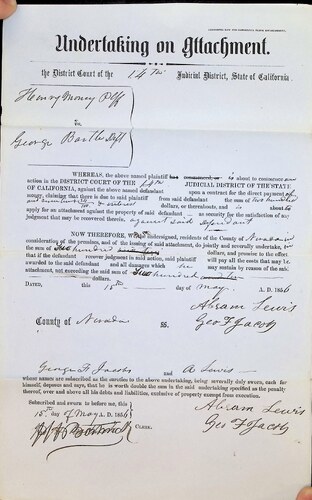 Undertaking on Attachment.
the District Court of the 14th Judicial District, State of California
Henry Money Plff
vs.
George Bartle Deft
WHEREAS, the above named plaintiff is about to commence an
action in the DISTRICT COURT OF THE 14th JUDICIAL DISTRICT OF THE STATE
OF CALIFORNIA, against the above named defendant
money, claiming that there is due to said plaintiff from said defendant the sum of Two hundred
dollars, or thereabouts, and is about to
apply for an attachment against the property of said defendant as security for the satisfaction of any
judgment that may be recovered therein, against said defendant
NOW THEREFORE, We the undersigned, residents of the County of Nevada in
consideration of the premises, and of the issuing of said attachment, do jointly and severally undertake, in
the sum of Two hundred dollars, and promise to the effect
that if the defendant recover judgment in said action, said plaintiff will pay all the costs that may be
awarded to the said defendant and all damages which he may sustain by reason of the said
attachment, not exceeding the said sum of Two hundred
dollars.
DATED, this 15th day of May A. D. 1856
Abram Lewis
County of Nevada SS. Geo F Jacobs
George F Jacobs and A Lewis
whose names are subscribed as sureties to the above undertaking, being severally duly sworn, each for
himself, deposes and says, that he is worth double the sum in the said undertaking specified as the penalty
thereof, over and above all his debts and liabilities, exclusive of property exempt from execution.
Subscribed and sworn to before me, this
15th day of May A. D. 1856 Abram Lewis
CLERK. Geo F Jacobs